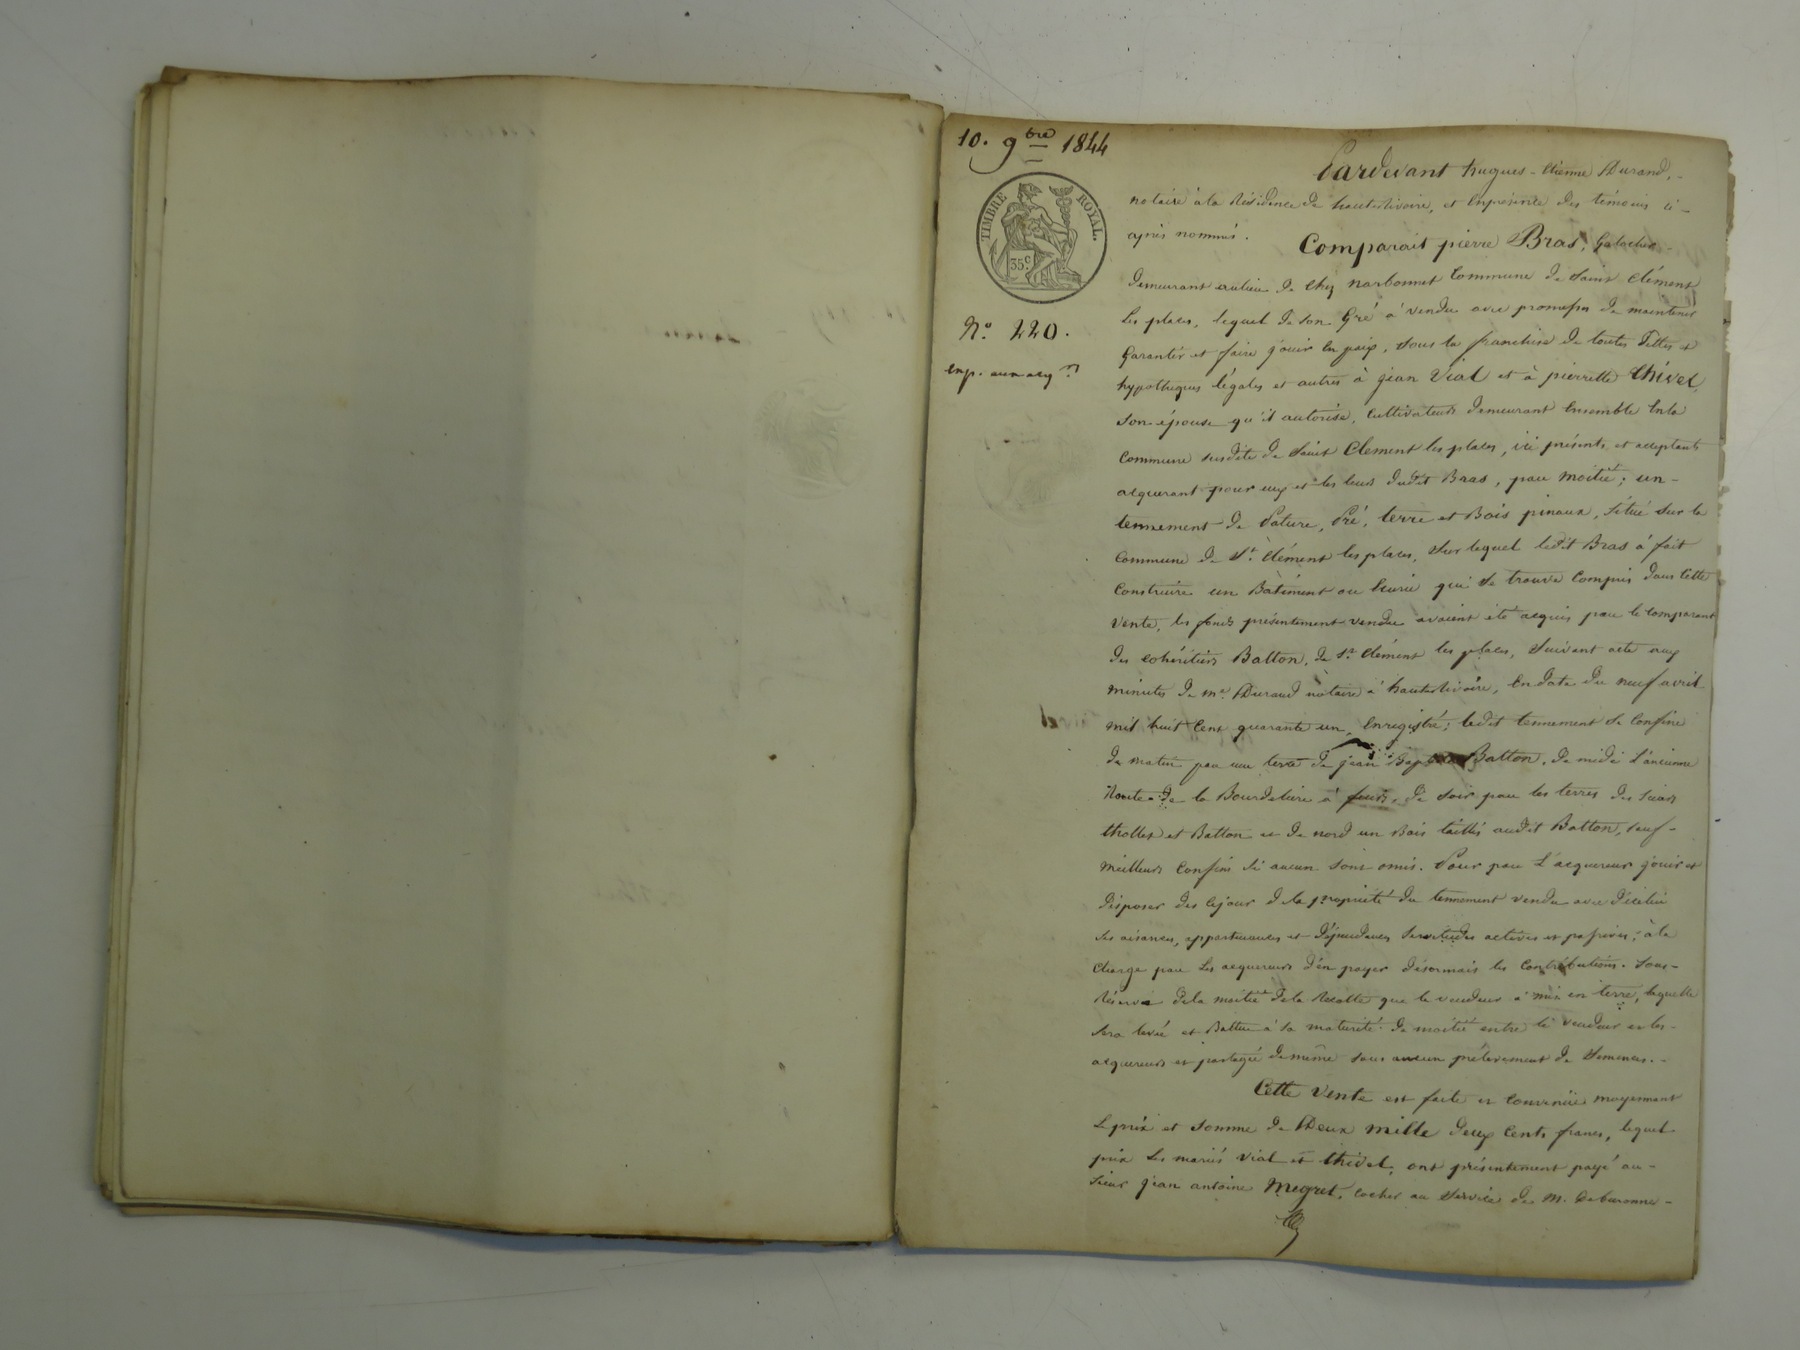 10. 9bre 1844
TIMBRE ROYAL.
35c
N° 220.
exp. aux acq
Pardevant hugues-Etienne Durand,
notaire à la Résidence de hauterivoire, et Enprésence des témoins ci-
après nommés.
Comparait pierre Bras, Galocher
demeurant aulieu de chez narbonnet Commune de Saint Clément
les places, lequel de son Gré à vendu avec promesse de maintenir
Garantir et faire jouir En paix, sous la franchise de toutes dettes et
hypotheques légales et autres à jean Vial et à pierrette Thivel,
son épouse qu'il autorise, Cultivateurs demeurant Ensemble En la
Commune susdite de Saint Clement les places, ici présents et acceptants
acquerant pour eux et les leurs dudit Bras, par moitié; un-
tennement de Pature, Pré, terre et Bois pinaux, situé sur la
Commune de St. Clément les places, sur lequel ledit Bras à fait
Construire un Bâtiment ou Ecurie qui se trouve Compris dans Cette
vente, les fonds présentement vendu avaient été acquis par le Comparant
des cohéritiers Batton, de St. Clément les places, suivant acte aux
minutes de me. Durand notaire à hauterivoire, En date du neuf avril
mil huit Cent quarante un, Enregistré; ledit tennement se Confine
de matin par une terre de jean Baptiste Batton, de midi l'ancienne
Route de la Bourdeliere à feurs, de soir par les terres des sieurs
thollet et Batton et de nord un Bois taillis audit Batton, sauf-
meilleurs Confins si aucun sont omis. Pour par l'acquereur jouir et
disposer des cejour de la propriété du tennement vendu avec d'icelui
ses aisances, appartenances et dépendances servitudes actives et passives; à la
charge par les acquereurs d'en payer désormais les Contributions. Sous-
Réserve dela moitié dela Recolte que le vendeur a mis en terre, laquelle
sera levée et Battue à sa maturité de moitié entre le vendeur et les-
acquereurs et partagée de même sans aucun prélevement de semences.-
Cette Vente est faite et Convenüe moyennant
le prix et somme de Deux mille deux Cents francs, lequel
prix les mariés Vial et thivel, ont présentement payé au-
sieur jean antoine Megret, cocher au service de M.